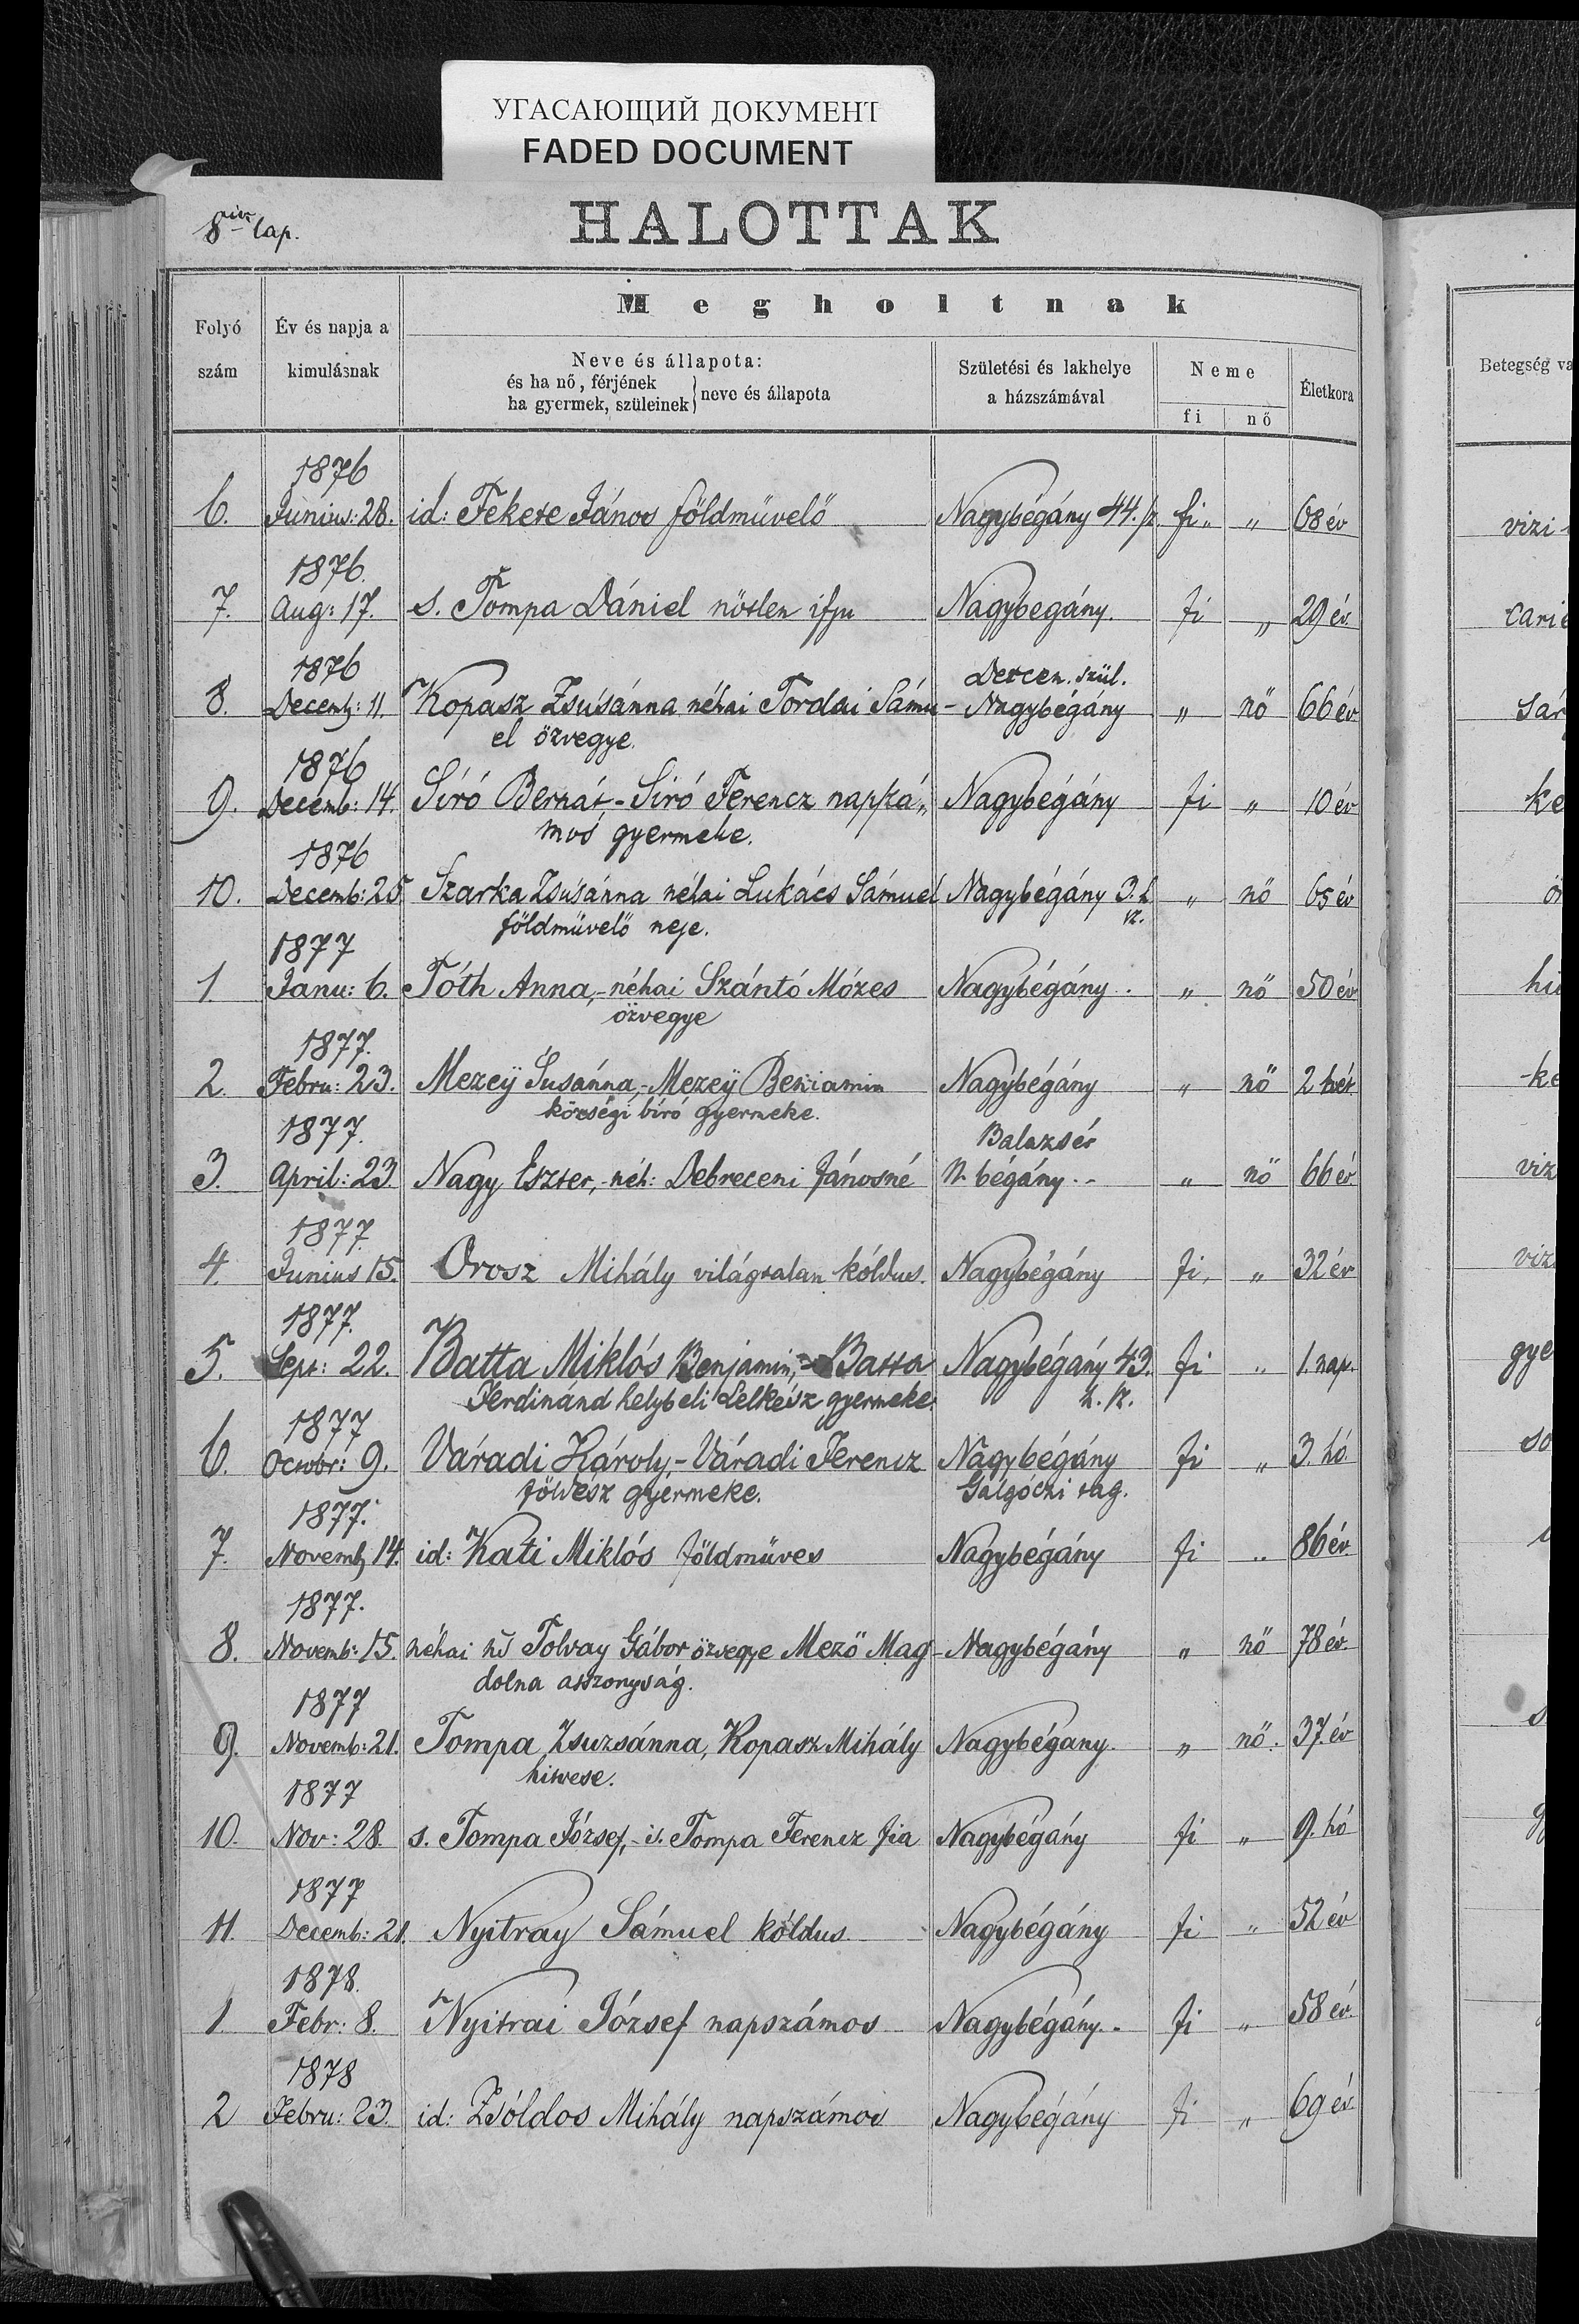 УГАСАЮЩИЙ ДОКУМЕНТ
FADED DOCUMENT
8 lap.
HALOTTAK
Megholtnak
Folyó szám
Év és napja a kimulásnak
Neve és állapota:
és ha nő, férjének
ha gyermek, szüleinek } neve és állapota
Születési és lakhelye
a házszámával
Neme
fi nő
Életkora
Betegség va
1876
6. Junius: 28. id: Fekete János földmüvelő Nagybégány 44. fi „ 68 év
vizi
1876.
7. Aug: 17. s. Tompa Dániel nőtlen ifju Nagybegány. fi „ 29 év.
carie
1876 Dercen. szül.
8. Decemb: 11. Kopasz Zsúsánna néhai Tordai Sámu- Nagybégány „ nő 66 év
el özvegye.
sár
1876
9. Decemb: 14. Síró Bernát,- Síró Ferencz napszá„ Nagybégány fi „ 10 év
mos gyermeke.
ke
1876
10. Decemb: 25 Szarka Zsúsánna néhai Lukács Sámuel Nagybégány „ nő 65 év
földmüvelő neje.
1877
1. Janu: 6. Tóth Anna,- néhai Szántó Mózes Nagybégány. „ nő 50 év
özvegye
1877.
2. Febru: 23. Mezeÿ Susánna,- Mezeÿ Beniamin Nagybégány „ nő 2 hét
községi bíró gyermeke.
-ke
1877. Balazsér
3. April: 23. Nagy Eszter,- néh: Debreceni Jánosné N. bégány.. „ nő 66 év.
viz
1877.
4. Junius 15. Orosz Mihály világtalan kóldus. Nagybégány fi, „ 32 év
viz
1877.
5. Sept: 22. Batta Miklós Benjamin,- Batta Nagybégány 43. fi „ 1. nap.
Ferdinánd helybeli Lelkész gyermeke.
gye
1877
6. Octobr: 9. Váradi Károly,- Váradi Ferencz Nagybégány fi „ 3. hó.
földész gyermeke. Galgóczi tag.
so
1877.
7. Novemb 14. id: Kati Miklós földmüves Nagybégány fi „ 86 év.
1877.
8. Novemb: 15. néhai Tolvay Gábor özvegye Mező Mag- Nagybégány „ nő 78 év.
dolna asszonyság.
1877
9. Novemb: 21. Tompa Zsuzsánna, Kopasz Mihály Nagybégany. „ nő. 37 év
hitvese.
1877
10. Nov: 28. s. Tompa József,- i. Tompa Ferencz fia Nagybégány fi „ 9. hó
1877
11. Decemb: 21. Nyitray Sámuel kóldus. Nagybégány fi „ 52 év
1878.
1. Febr: 8. Nyitrai József napszámos Nagybégány.. fi „ 58 év.
1878
2 Febru: 23. id: Zsóldos Mihály napszámos Nagybégány fi „ 69 év